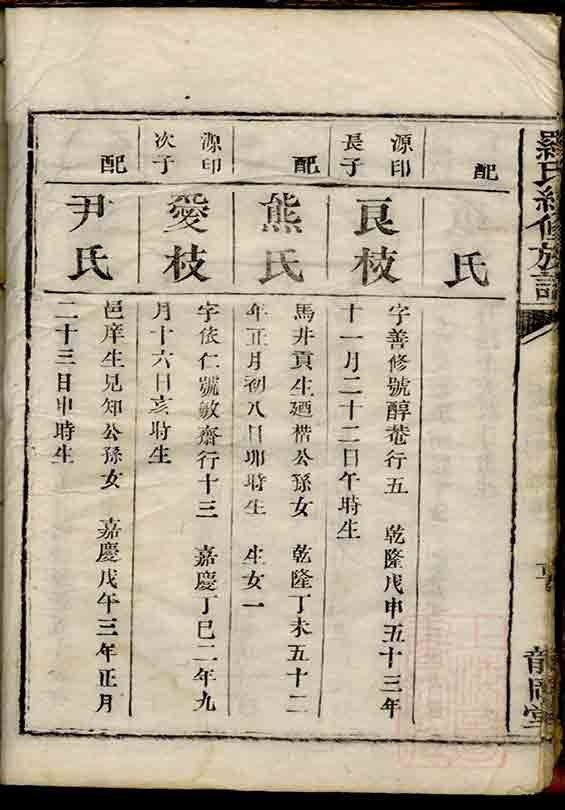 羅氏續修族譜
龍岡堂
配
氏
源印
長子
良枝
字善修號醇菴行五 乾隆戊申五十三年
十一月二十二日午時生
配
熊氏
馬井貢生廼楷公孫女 乾隆丁未五十二
年正月初八日卯時生 生女一
源印
次子
愛枝
字依仁號敏齋行十三 嘉慶丁巳二年九
月十六日亥時生
配
尹氏
邑庠生見知公孫女 嘉慶戊午三年正月
二十三日申時生